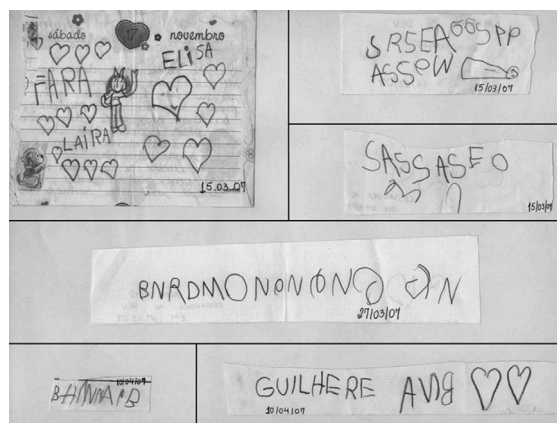 sábado 17 novembro
ELISA
FARA
LAIRA
15.03.07
SRSEAGGSPP
ASSPW
15/03/07
SASSASEO
15/03/07
BNRDMONONONO
27/03/07
10/04/07
GUILHERE
10/04/07